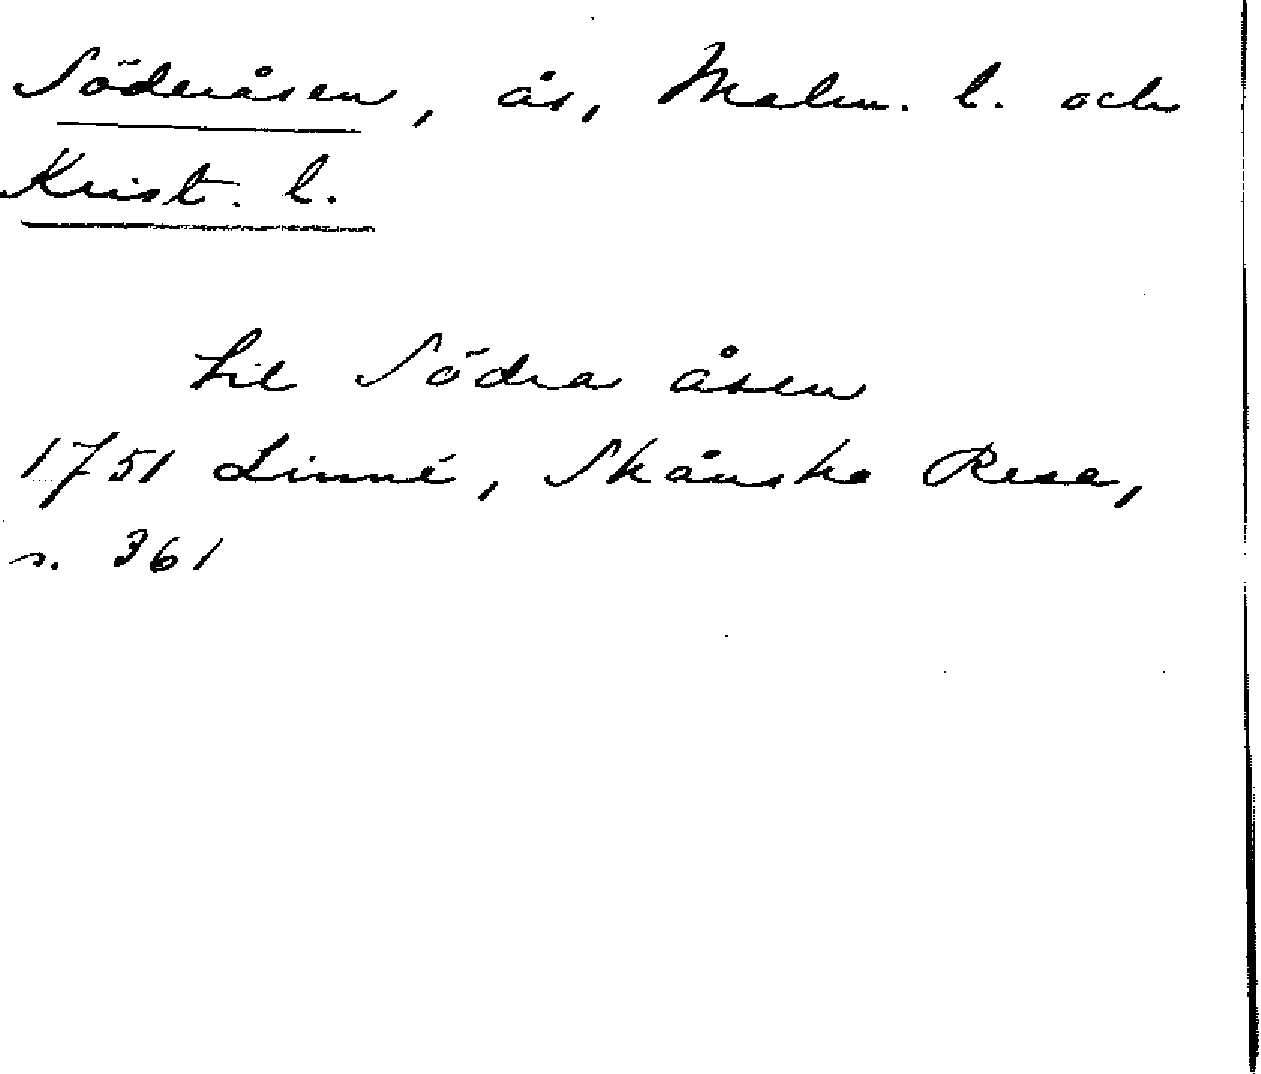 Söderåsen, ås, Malm. l. och
Krist. l.
til Södra åsen
1751 Linné, Skånska Resa,
s. 361